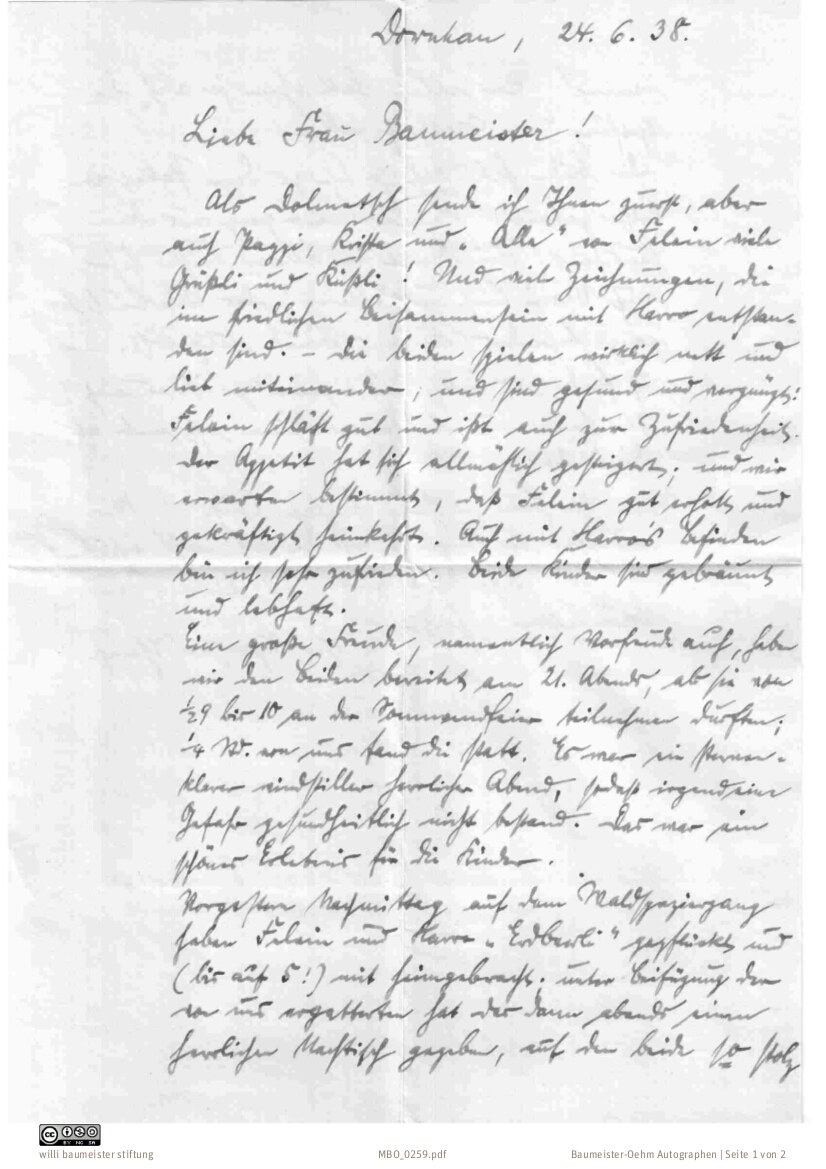 Dornhan, 24. 6. 38.
Liebe Frau Baumeister!
Als Dolmetsch sende ich Ihnen zuerst, aber
auch Pappi, Krista und „Alle“ von Felein viele
Grüßli und Küßli! Und viel Zeichnungen, die
im friedlichen Beisammensein mit Harro entstan-
den sind. – Die beiden spielen wirklich nett und
lieb miteinander, und sind gesund und vergnügt!
Felein schläft gut und ißt auch zur Zufriedenheit.
Der Appetit hat sich allmählich gesteigert, und wir
erwarten bestimmt, daß Felein gut erholt und
gekräftigt heimkehrt. Auch mit Harro's Befinden
bin ich sehr zufrieden. Beide Kinder sind gebräunt
und lebhaft.
Eine große Freude, namentlich Vorfreude auch, haben
wir den Beiden bereitet am 21. Abends, als sie von
½9 bis 10 an der Sonnwendfeier teilnehmen durften;
¼ St. von uns fand die statt. Es war ein sternen-
klarer windstiller herrlicher Abend, sodaß irgendeine
Gefahr gesundheitlich nicht bestand. Das war ein
schönes Erlebnis für die Kinder.
Vorgestern Nachmittag auf dem Waldspaziergang
haben Felein und Harro „Erdberli“ gepflückt und
(bis auf 5!) mit heimgebracht. Unter Beifügung der
von uns ergatterten hat das dann abends einen
herrlichen Nachtisch gegeben, auf den beide so stolz
CC BY NC SA
willi baumeister stiftung MBO_0259.pdf Baumeister-Oehm Autographen | Seite 1 von 2